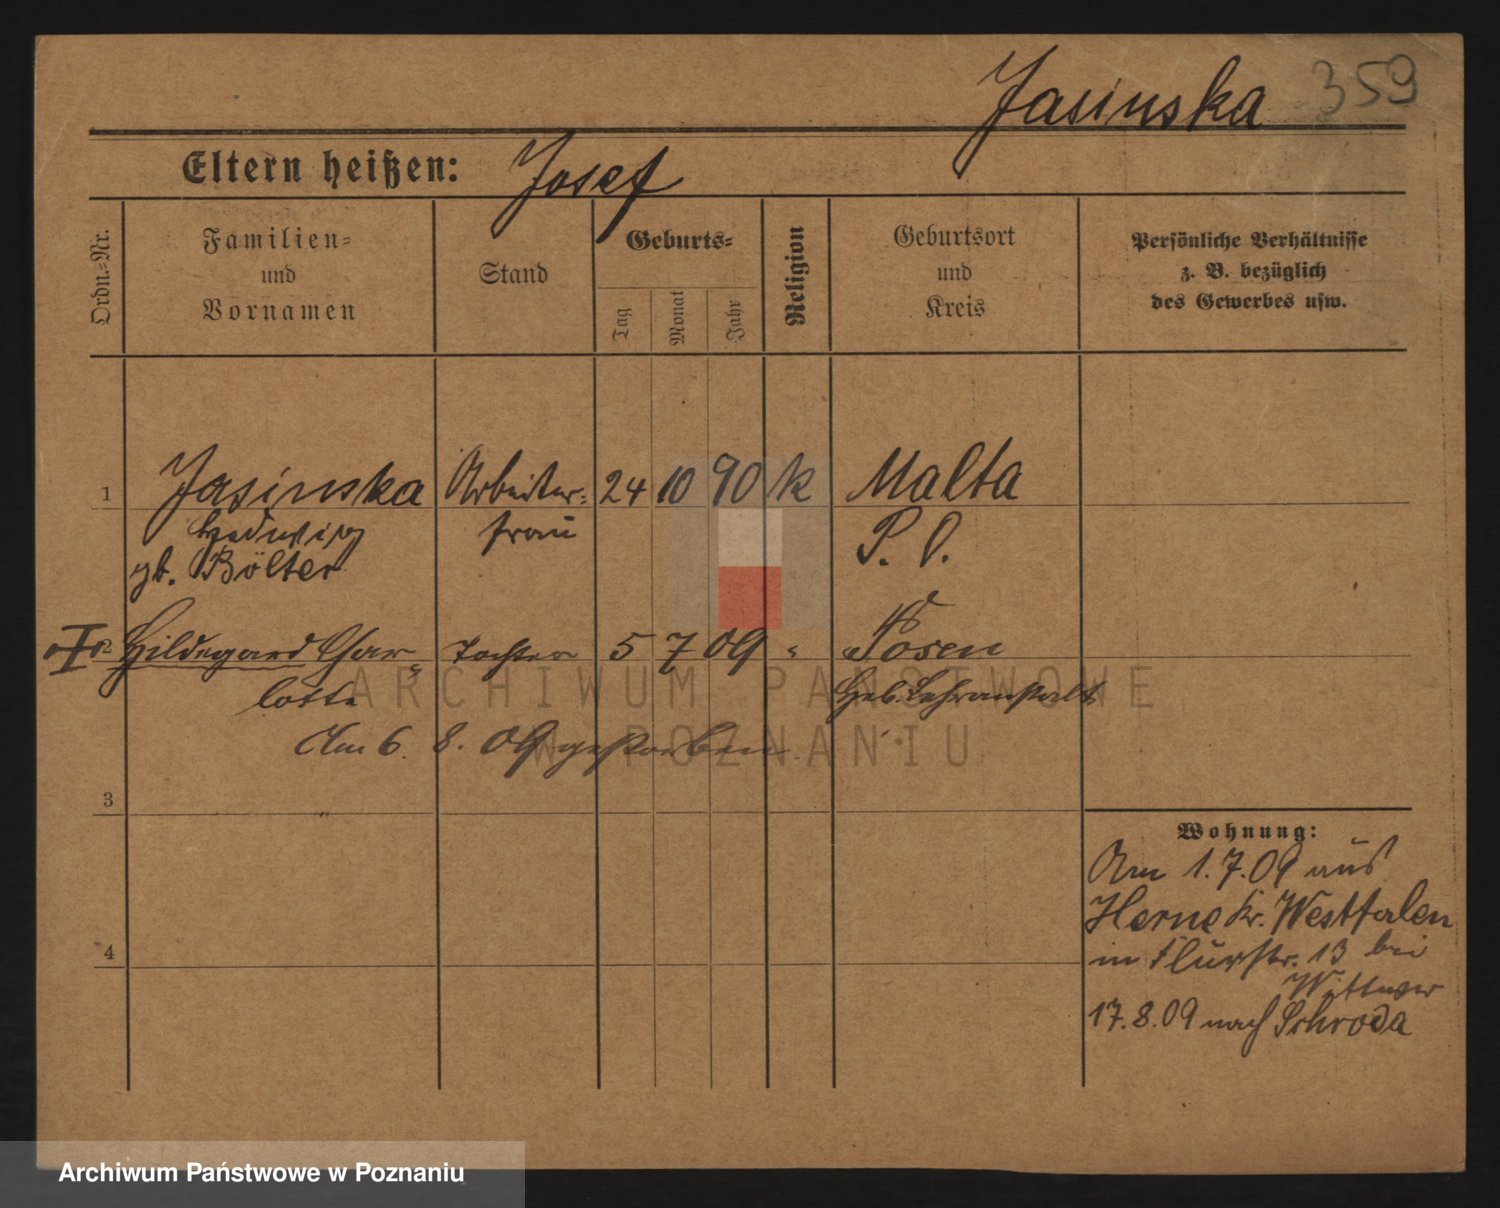 Jasinska 359
Eltern heißen: Josef
Ordn.=Nr.
Familien=
und
Vornamen
Stand
Geburts=
Tag
Monat
Jahr
Religion
Geburtsort
und
Kreis
Persönliche Verhältnisse
z. B. bezüglich
des Gewerbes usw.
1 Jasinska Arbeiter= 24 10 90 k Malta
Hedwig frau P. O.
gb. Bölter
2 Hildegard Char= Tochter 5 7 09 " Posen
lotte Heb. Lehranstalt
Am 6. 8. 09 gestorben
3
4
Wohnung:
Am 1.7.09 aus
Herne Kr. Westfalen
in Flurstr. 13 bei
17.8.09 nach Schroda
ARCHIWUM PAŃSTWOWE
W POZNANIU
Archiwum Państwowe w Poznaniu